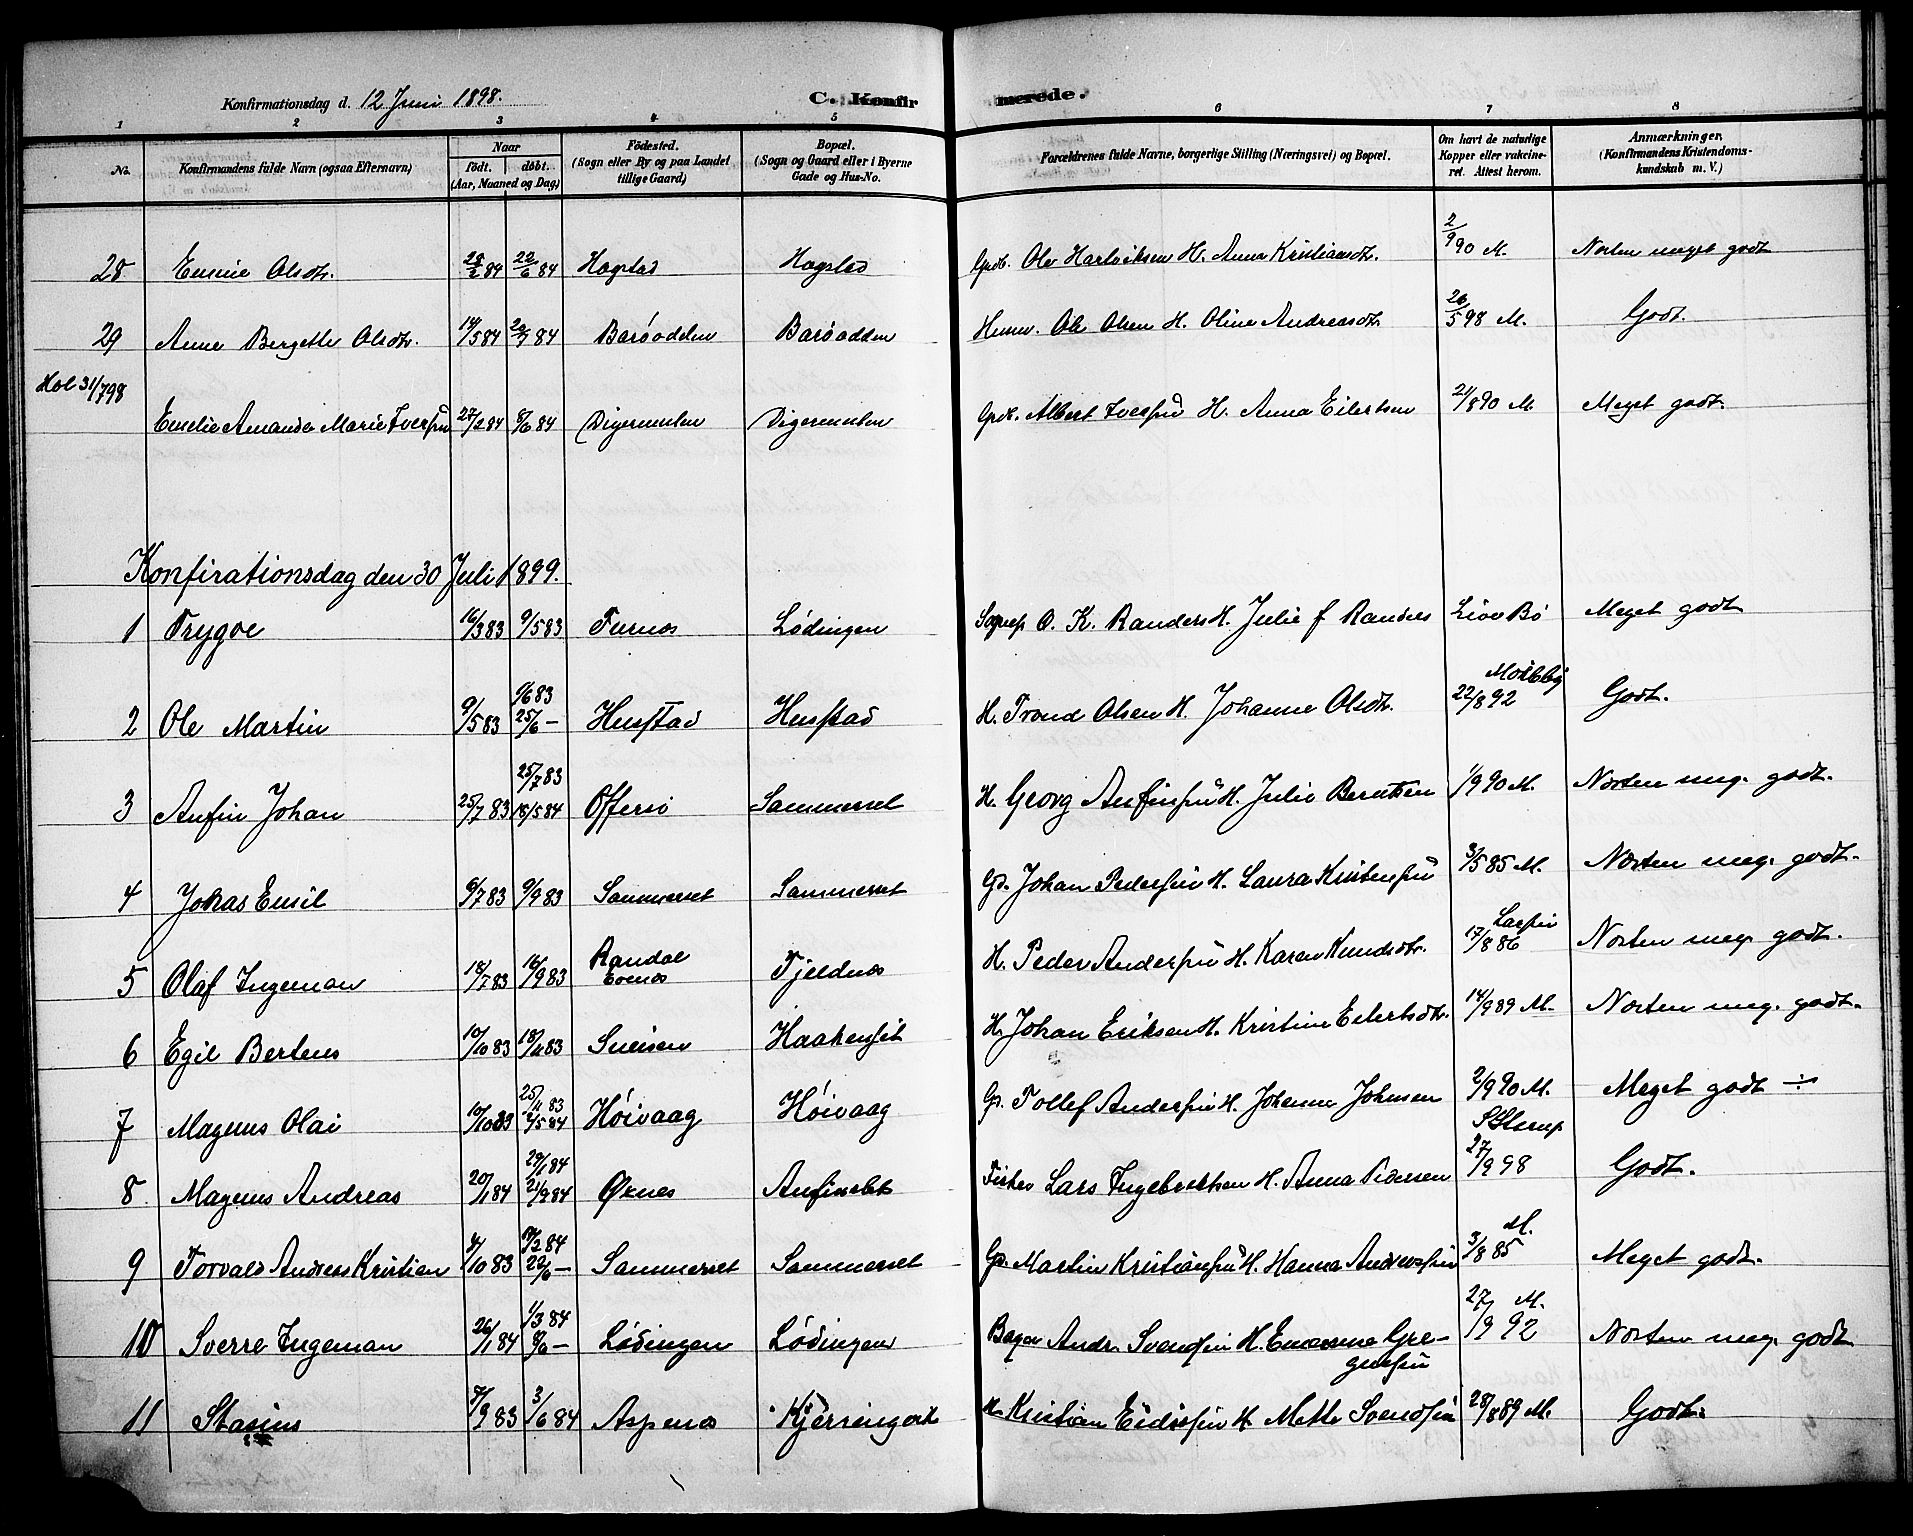 Konfirmationsdag d. 12 Juni 1898. C. Konfirmerede.
1 2 3 4 5 6 7 8
No. Konfirmandens fulde Navn (ogsaa Efternavn) Naar født. døbt. (Aar, Maaned og Dag) Fødested. (Sogn eller By og paa Landet tillige Gaard) Bopæl. (Sogn og Gaard eller i Byerne Gade og Hus-No. Forældrenes fulde Navne, borgerlige Stilling (Næringsvei) og Bopæl. Om havt de naturlige Kopper eller vakcineret. Attest herom. Anmærkninger. (Konfirmandens Kristendomskundskab m. V.)
28 Emmie Olsdtr. 22/6 84 Hogstad Hogstad Grdb. Ole Hartviksen H. Anna Kristiansdtr. 2/9 90 M. Næsten meget godt
29 Anne Bergette Olsdtr. 14/5 84 84 Barøodden Barøodden Ole Olsen H. Oline Andreasdtr. 26/5 98 M. Godt.
Hol 31/7 98
Emelie Amanda Marie Iversen 27/2 84 8/6 84 Digermulen Digermulen Albert Iversen H. Anna Eilertsen 21/8 90 M Meget godt.
Konfirationsdag den 30 Juli 1899.
1 Trygve 16/3 83 9/5 83 Turnøs Lødingen O. K. Randers H. Julie f Randers Bø Meget godt
2 Ole Martin 9/5 83 9/6 83 25/6 — Husstad Husstad H. Trond Olsen H. Johanne Olsdtr. 22/8 92 Godt.
3 Anfin Johan 25/7 83 25/7 83 18/5 84 Offersø Sammerset H. Georg Anfinsen H. Julie Berntsen 1/9 90 M. Næsten meg. godt.
4 Johas Emil 6/7 83 9/9 83 Sammerset Sammerset Gp. Johan Pedersen H. Laura Kristensen 3/5 85 M. Næsten meg. godt.
5 Olaf Ingeman 18/7 83 16/9 83 Randal Evenes Tjeldnes H. Peder Andersen H. Karen Knudsdtr. 17/8 86 Larsen Næsten meg. godt.
6 Egil Bertens 10/10 83 18/11 83 Haakenset H. Johan Eriksen H. Kristine Eilertsdtr. 14/9 89 M. Næsten meg. godt.
7 Magnus Olai 10/10 83 25/11 83 /5 84 Høivaag Høivaag Gp. Tollef Andersen H. Johanna Johnsen 2/9 90 M. Meget godt ÷
8. Magnus Andreas 20/1 84 29/1 84 21/9 84 Øknes Anfinslet Fisker Lars Ingebrektsen H. Anna Pedersen 27/9 98 Godt.
9 Torvald Andreas Kristian 8/10 83 17/2 84 22/6 — Sammerset Sammerset Gp. Martin Kristiansen H. Hanna Andreassen 3/8 85 M. Meget godt.
10 Sverre Ingeman 26/1 84 1/3 84 8/6 — Lødingen Lødingen Bager Andr. Svendsen H. Emerense Gregussen 27/9 92 M. Næsten meg. godt
11 Stasius 8/9 83 3/6 84 Aspenes Kjerringvik Kristian Eidissen H. Mette Svendsen 28/8 89 M. Godt.